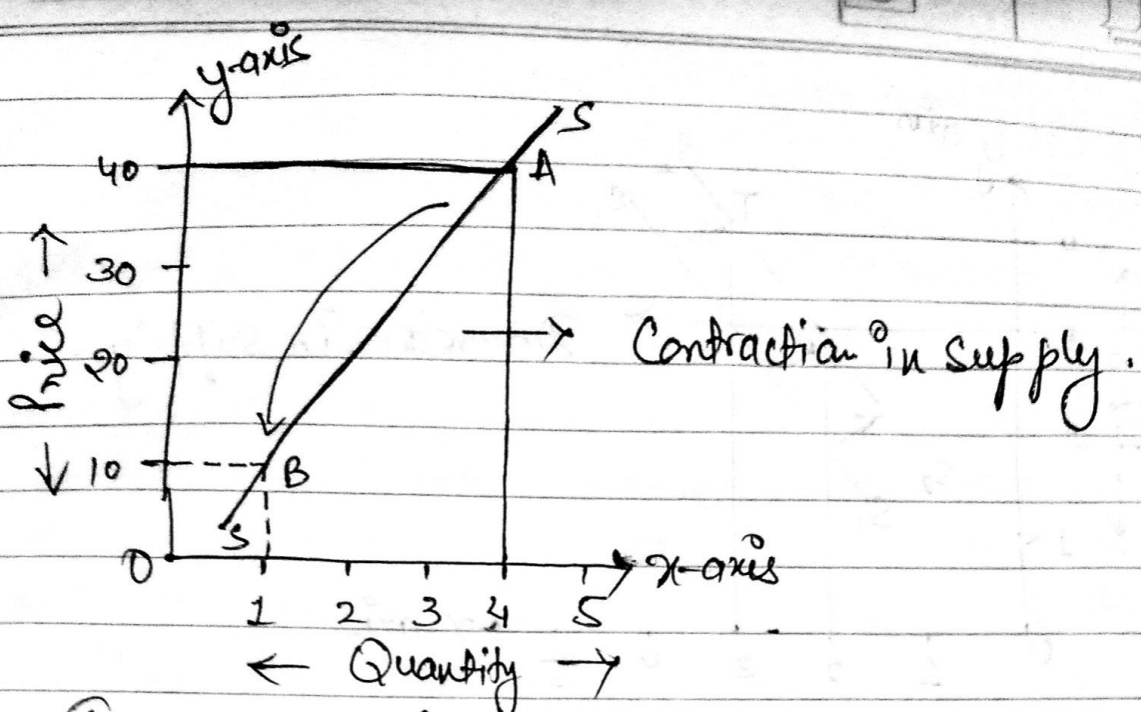 y-axis
S
40
A
30
Price
Contraction in Supply.
20
10
B
S
0
x-axis
1 2 3 4 5
Quantity